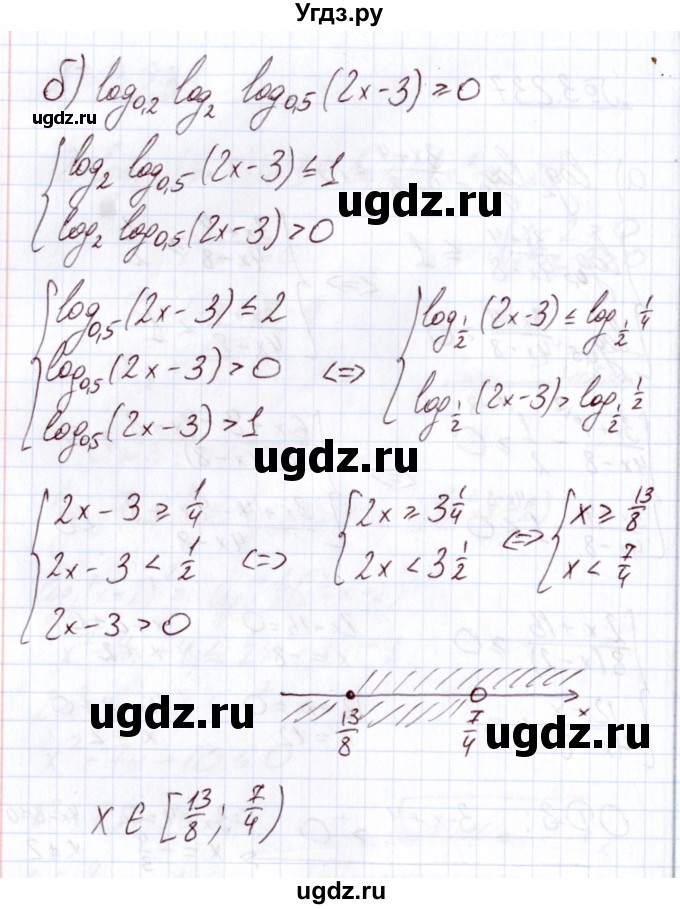 Угдз.ру
б) log₀,₂ log₂ log₀,₅ (2x-3) ≥ 0
ugdz.ru
{ log₂ log₀,₅ (2x-3) ≤ 1
log₂ log₀,₅ (2x-3) > 0
ugdz.ru
{ log₀,₅ (2x-3) ≤ 2
log₀,₅ (2x-3) > 0
log₀,₅ (2x-3) > 1
<=> { log_{1/2} (2x-3) ≤ log_{1/2} 1/4
log_{1/2} (2x-3) > log_{1/2} 1/2
ugdz.ru
{ 2x-3 ≥ 1/4
2x-3 < 1/2
2x-3 > 0
<=> { 2x ≥ 3 1/4
2x < 3 1/2
<=> { x ≥ 13/8
x < 7/4
13/8 7/4 x
ugdz.ru
ugdz.ru
x ∈ [13/8; 7/4)
ugdz.ru
ugdz.ru